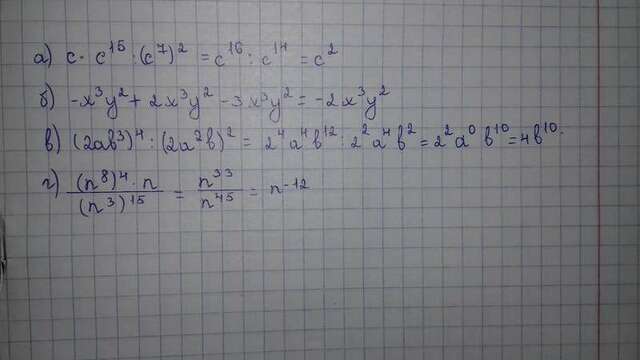 а) c · c¹⁵ : (c⁷)² = c¹⁶ : c¹⁴ = c²
б) -x³y² + 2x³y² - 3x³y² = -2x³y²
в) (2ab³)⁴ : (2a²b)² = 2⁴a⁴b¹² : 2²a⁴b² = 2²a⁰b¹⁰ = 4b¹⁰.
г) (n⁸)⁴ · n / (n³)¹⁵ = n³³ / n⁴⁵ = n⁻¹²